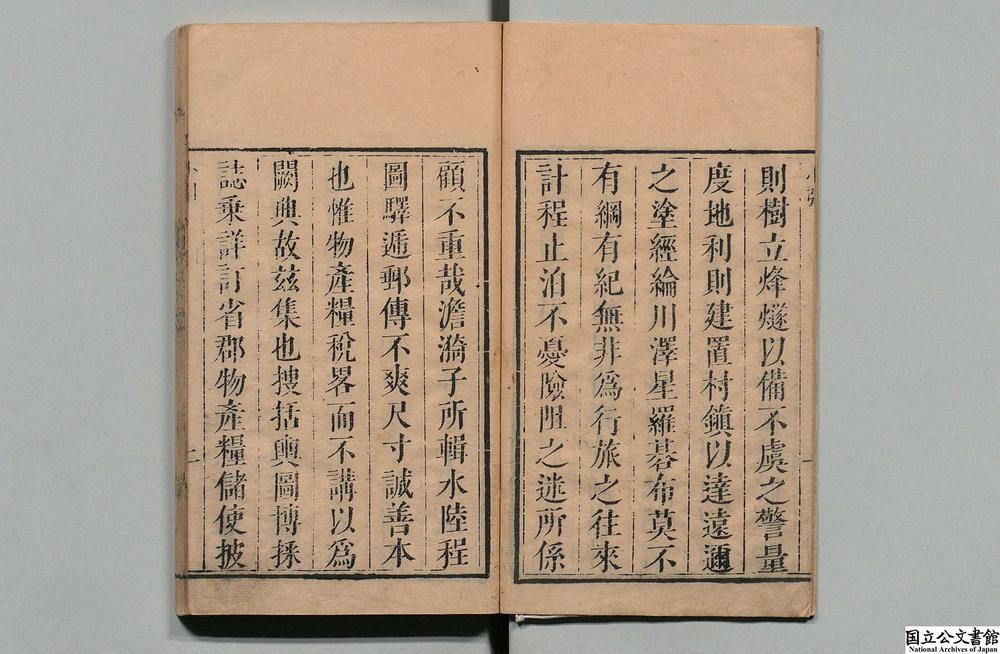 則樹立烽燧以備不虞之警量
度地利則建置村鎮以達遠邇
之塗經綸川澤星羅碁布莫不
有綱有紀無非爲行旅之往來
計程止泊不憂險阻之迷所係
顧不重哉澹漪子所輯水陸程
圖驛遞郵傳不爽尺寸誠善本
也惟物產糧稅畧而不講以爲
闕典故兹集也搜括輿圖博採
誌乗詳訂省郡物產糧儲使披
国立公文書館
National Archives of Japan